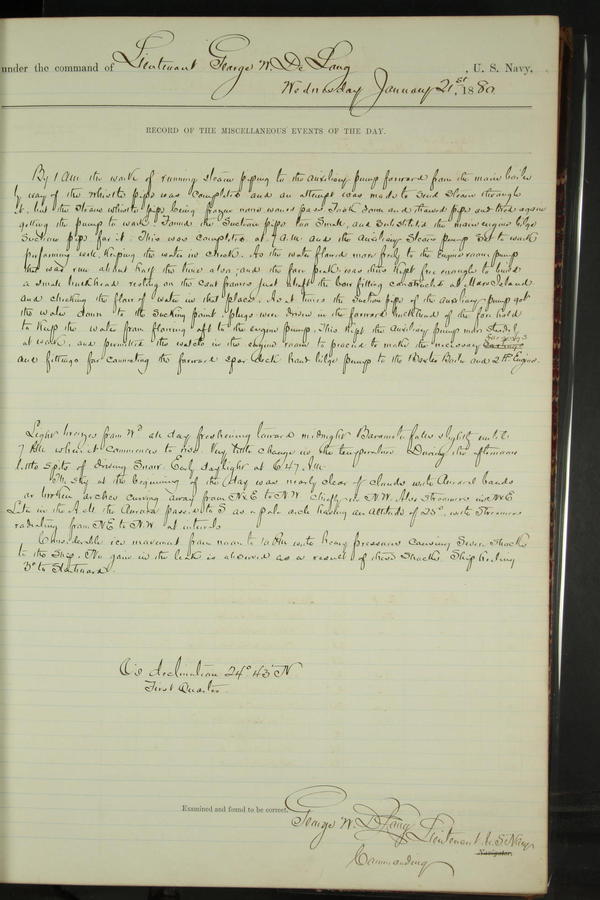 under the command of Lieutenant George W. De Long, U. S. Navy,
Wednesday January 21st, 1880
RECORD OF THE MISCELLANEOUS EVENTS OF THE DAY.
By 1 AM the work of running steam piping to the auxiliary pump forward from the main boiler
by way of the whistle pipe was completed and an attempt was made to send steam through
it, but the steam whistle pipe being frozen some hours past. Took down and thawed pipe and tried again
getting the pump to work. Found the suction pipe too small, and substituted the main engine bilge
suction pipe for it. This was completed at 7 AM and the auxiliary steam pump set to work
performing well, keeping the water in check. As the water flowed more freely to the engine room pump
that was run about half the time also, and the fore peak was thus kept free enough to build
a small bulkhead resting on the cant frames just abaft the box fitting constructed at Mare Island
and checking the flow of water in that place. As at times the suction pipe of the auxiliary pump got
the water down to the sucking point, plugs were driven in the forward bulkhead of the fore hold
to keep the water from flowing aft to the engine pump. This kept the auxiliary pump more steadily
at work, and permitted the watch in the engine room to proceed to make the necessary castings
and fittings for connecting the forward spar deck hand bilge pump to the Baxter Boiler and 2nd Engine.
Light breezes from Wd all day freshening toward midnight. Barometer falls slightly until
7 PM when it commences to rise. Very little change in the temperature. During the afternoon
little spits of driving snow. Early daylight at 6.47. AM
The sky at the beginning of the day was nearly clear of clouds with Auroral bands
or broken arches curving away from N & E to N W chiefly in N.W. Also streamers in N & E
Late in the A M the Aurora passed into S as a pale arch having an altitude of 25°, with streamers
radiating from N E to N.W. at intervals
Considerable ice movement from noon to 10 PM with heavy pressures causing severe shocks
to the ship. No gain in the leak is observed as a result of these shocks. Ship heeling
3° to Starboard.
☾'s declination 24° 43' N
First Quarter
Examined and found to be correct.
George W. De Long Lieutenant U. S Navy
Navigator.
Commanding